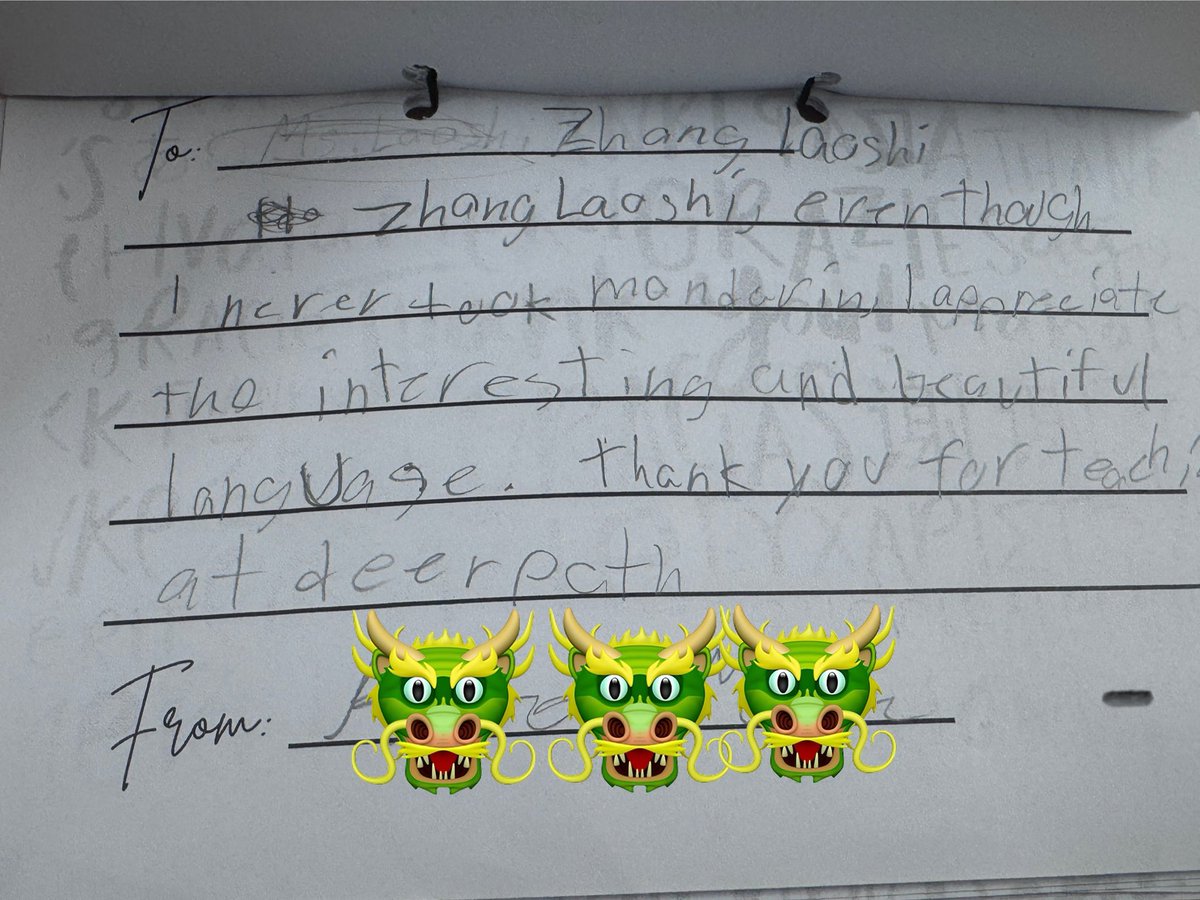 To: Ms. Laoshi Zhang Laoshi
Zhang Laoshi, even though
I never took mandarin, I appreciate
the interesting and beautiful
language. Thank you for teachi
at deerpath
From: